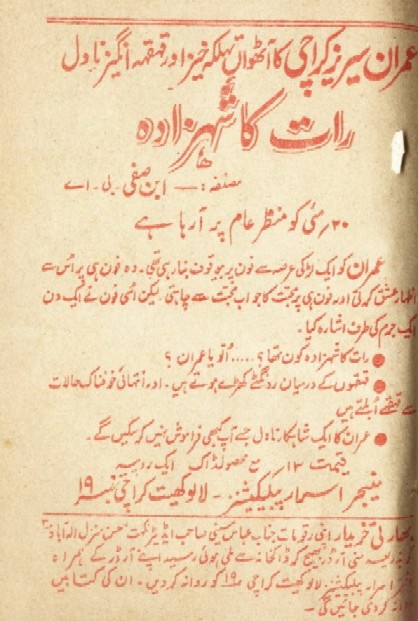 عمران سیریز کراچی کا آٹھواں تہلکہ خیز اور قہقہہ انگیز ناول
رات کا شہزادہ
مصنفہ:— ابن صفی بی۔اے
۲۰ مئی کو منظر عام پر آ رہا ہے
عمران کو ایک لڑکی عرصہ سے فون پر بیوقوف بنا رہی تھی۔ وہ فون ہی پر اس سے
اظہار عشق کرتی اور فون ہی پر محبت کا جواب محبت سے چاہتی۔ لیکن اسی فون نے ایک دن
ایک جرم کی طرف اشارہ کیا۔
● رات کا شہزادہ کون تھا؟..... اُلّو یا عمران؟
● قہقہوں کے درمیان رونگٹے کھڑے ہوتے ہیں۔ اور انتہائی خوفناک حالات
سے قہقہے اُبلتے ہیں
● عمران کا ایک شاہکار ناول جسے آپ کبھی فراموش نہیں کر سکیں گے۔
قیمت ۱۳ مع محصولڈاک ایک روپیہ
منیجر اسرار پبلیکیشنز۔ لالوکھیت کراچی نمبر ۱۹
بھارتی خریدار اپنی رقومات جناب عباس حسینی صاحب ایڈیٹر نکہت حسن منزل الہ آباد
کو بذریعہ منی آرڈر بھیج کر ڈاکخانہ سے ملی ہوئی رسید اپنے آرڈر کے ہمراہ
اسرار پبلیکیشنز لالوکھیت کراچی ۱۹ کو روانہ کر دیں۔ ان کی کتابیں
روانہ کر دی جائیں گی۔